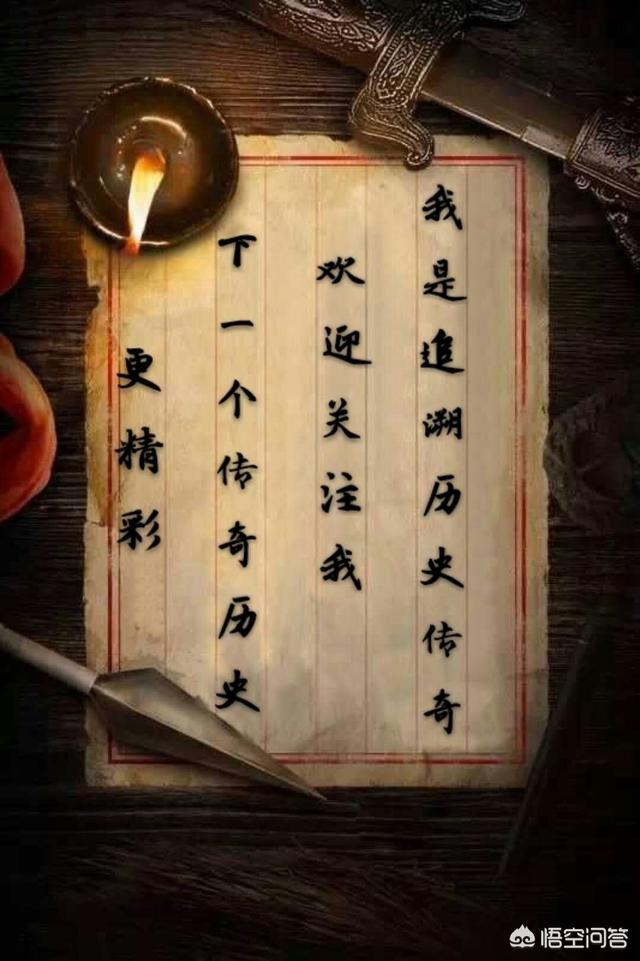 我是追溯历史传奇
欢迎关注我
下一个传奇历史
更精彩
悟空问答